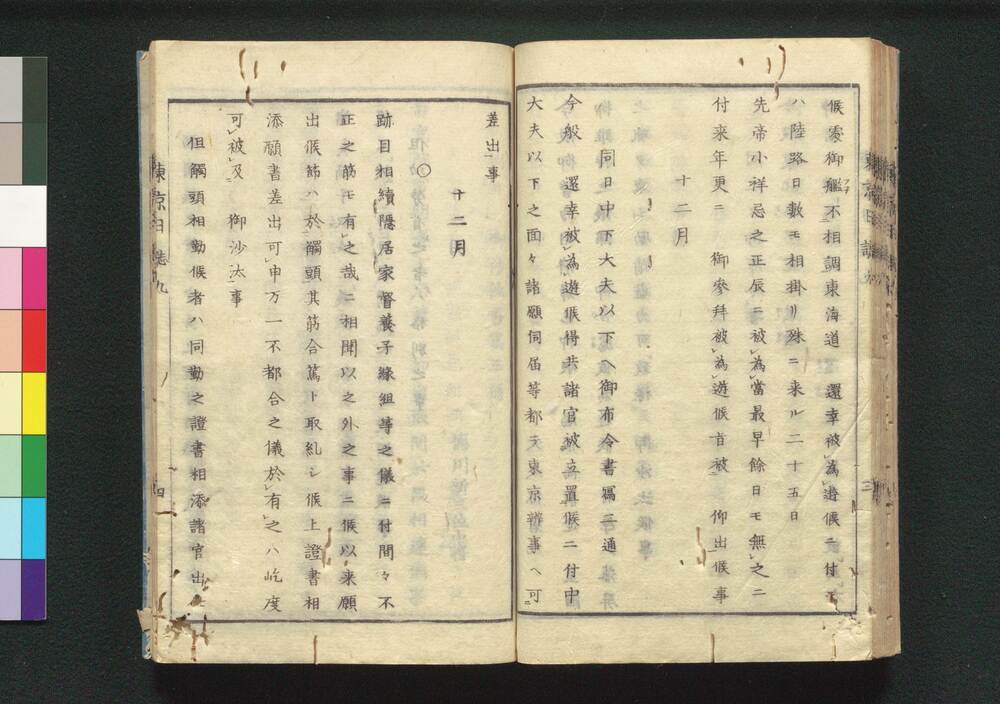 候處御艦不相調東海道　還幸被㆑為㆑遊候ニ付テ
ハ陸路日數モ相掛リ殊ニ来ル二十五日
先帝小祥忌之正辰ニ被㆑為㆑當最早餘日モ無㆑之ニ
付来年更ニ　御參拜被㆑為㆑遊候旨被㆓　仰出候事
十二月
同日中下大夫以下ヘ御布令書寫二通
今般　還幸被㆑為㆑遊候得共諸官被㆓立置候ニ付中
大夫以下之面々諸願伺届等都テ東京辨事ヘ可㆓
差出㆒事
十二月
○
跡目相續隱居家督養子緣組等之儀ニ付間々不
正之筋モ有㆑之哉ニ相聞以之外之事ニ候以来願
出候節ハ於㆓觸頭其筋合篤ト取糺シ候上證書相
添願書差出可㆑申万一不都合之儀於㆑有㆑之ハ屹度
可㆑被㆑及　御沙汰㆒事
但觸頭相勤候者ハ同勤之證書相添諸官出
東京日誌九
三
東京日誌九
四